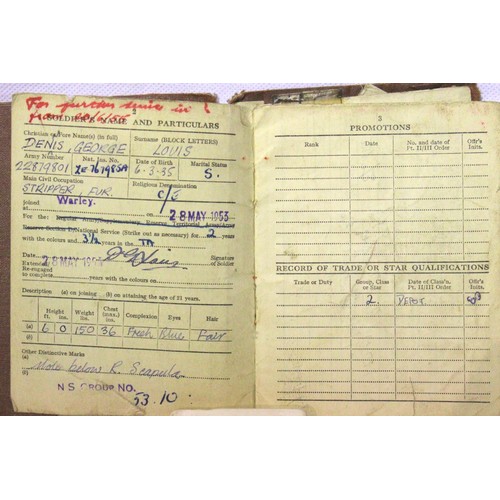 For further service in
3
SOLDIER'S NAME AND PARTICULARS
Christian or Fore Name(s) (in full) Surname (BLOCK LETTERS)
DENIS, GEORGE LOUIS
Army Number Nat. Ins. No. Date of Birth Martial Status
22879801 6-3-35 S.
Main Civil Occupation Religious Denomination
STRIPPER, FUR. C/E
joined Warley. on 28 MAY 1953
at
For the: Regular Army/Supplementary Reserve
Reserve Section D/National Service (Strike out as necessary) for 2 years
with the colours and 3½ years in the TA
Date 28 MAY Signature of Soldier
Extended
Re-engaged
to complete years with the colours on
Description (a) on joining (b) on attaining the age of 21 years.
Height ft. ins. Weight lbs. Chest (max.) ins. Complexion Eyes Hair
(a) 6 0 150 36 Fresh Blue Fair
(b)
Other Distinctive Marks
(a)
Mole below R. Scapula
(b)
N S GROUP NO. 53.10.
3
PROMOTIONS
Rank Date No. and date of Pt. II/III Order Offr's Inits.
RECORD OF TRADE OR STAR QUALIFICATIONS
Trade or Duty Group, Class or Star Date of Class'n. Pt. II/III Order Offr's Inits.
2. DEPOT